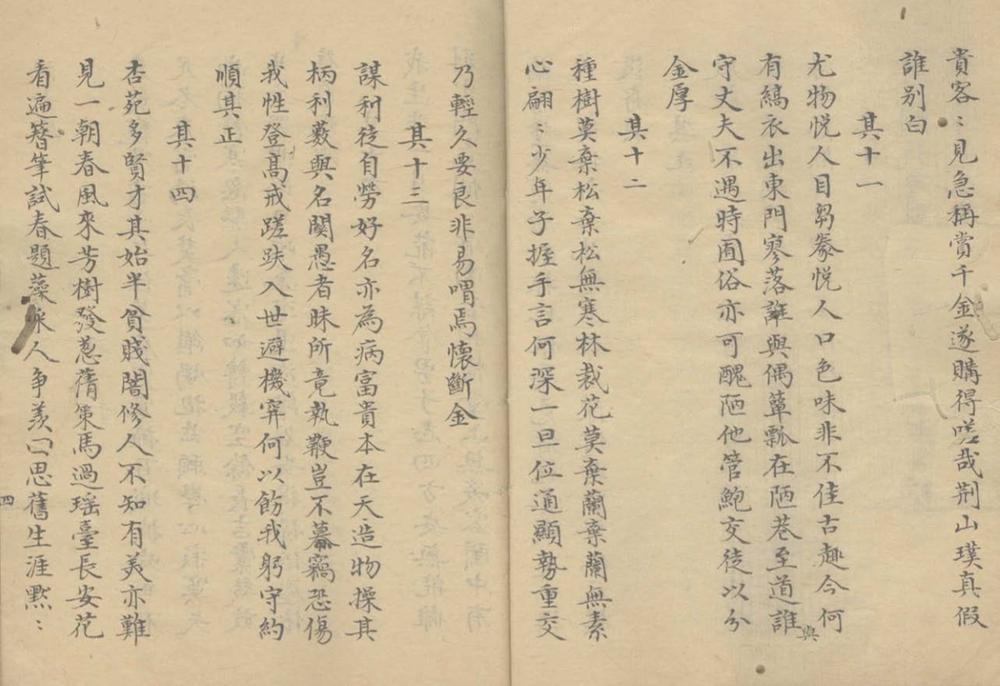 貴客〻見急稱賞千金遂購得嗟哉荆山璞真假
誰别白
其十一
尤物悅人目芻豢悅人口色味非不佳古趣今何
有縞衣出東門寥落誰與偶簞瓢在陋巷至道誰
與
守丈夫不遇時囿俗亦可醜陋他管鮑交徒以分
金厚
其十二
種樹莫棄松棄松無寒林栽花莫棄蘭棄蘭無素
心翩〻少年子握手言何深一旦位通顯勢重交
乃輕久要良非易喟焉懷斷金
其十三
謀利徒自勞好名亦為病富貴本在天造物操其
柄利藪與名關愚者昧所竟執鞭豈不慕竊恐傷
我性登高戒蹉跌入世避機穽何以飭我躬守約
順其正
其十四
杏苑多賢才其始半貧賤闇修人不知有美亦難
見一朝春風來芳樹發葱蒨策馬過瑶臺長安花
看遍簪筆試春題藻采人争羡思舊生涯黙〻
四